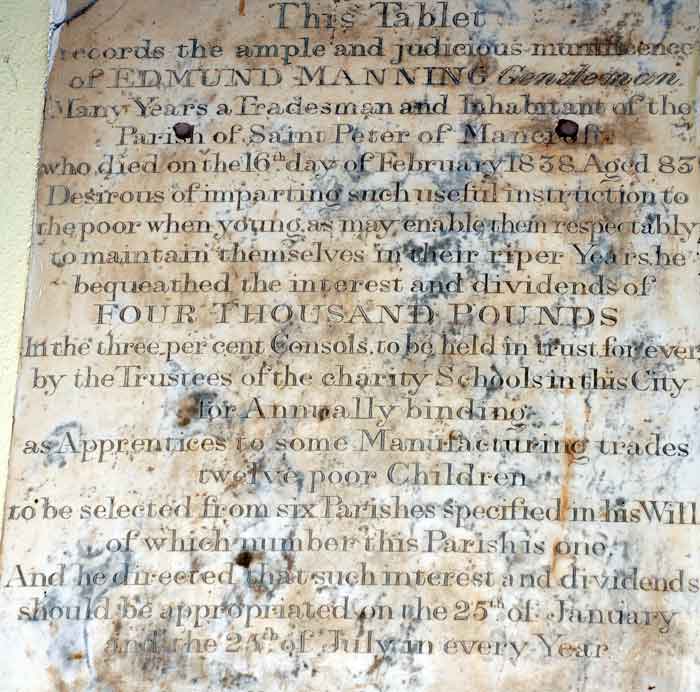 This Tablet
records the ample and judicious munificence
of EDMUND MANNING Gentleman
Many Years a Tradesman and Inhabitant of the
Parish of Saint Peter of Mancroft
who died on the 16th day of February 1838 Aged 83
Desirous of imparting such useful instruction to
the poor when young as may enable them respectably
to maintain themselves in their riper Years, he
bequeathed the interest and dividends of
FOUR THOUSAND POUNDS
In the three per cent Consols, to be held in trust for ever
by the Trustees of the charity Schools in this City
for Annually binding
as Apprentices to some Manufacturing trades
twelve poor Children
to be selected from six Parishes specified in his Will
of which number this Parish is one,
And he directed that such interest and dividends
should be appropriated on the 25th of January
and the 25th of July in every Year